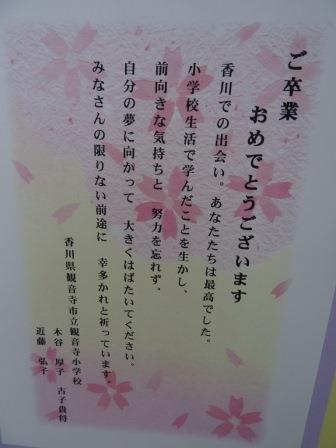 ご卒業
おめでとうございます
香川での出会い。あなたたちは最高でした。
小学校生活で学んだことを生かし、
前向きな気持ちと 努力を忘れず、
自分の夢に向かって 大きくはばたいてください。
みなさんの限りない前途に 幸多かれと祈っています。
香川県観音寺市立観音寺小学校
木谷 厚子 古子貴将
近藤 弘子